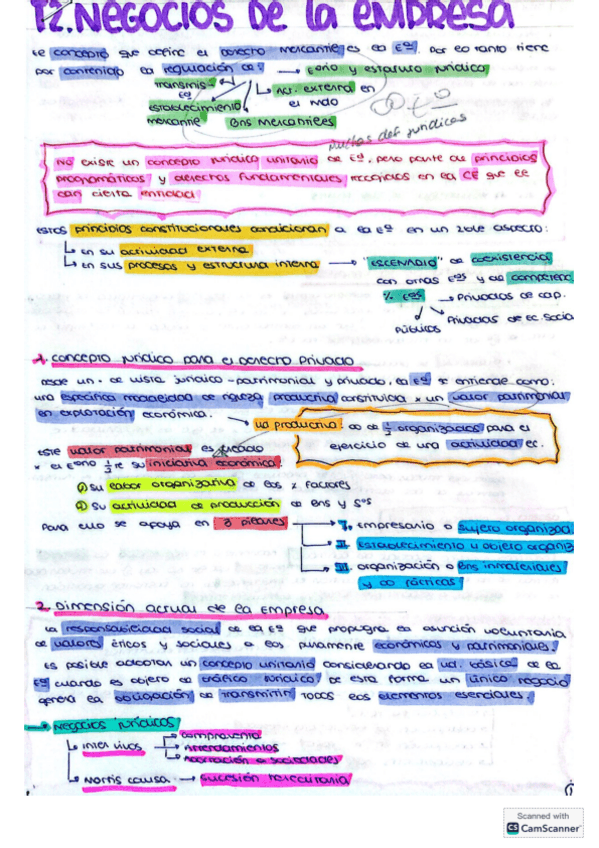 T2. NEGOCIOS DE la EMPRESA
El concepto que define el derecho mercantil es la Eª. Por lo tanto tiene
por contenido la regulación de: → Eºrio y estatuto jurídico
transmis. Eª
Act. externa en el mdo
establecimiento mercantil
Bns mercantiles
muchas def jurídicas
No existe un concepto jurídico unitario de Eª, pero parte de principios
programáticos y derechos fundamentales recogidos en la CE que le
dan cierta entidad
Estos principios constitucionales condicionan a la Eª en un doble aspecto:
↳ En su actividad externa
↳ en sus procesos y estructura interna → "ESCENARIO" de coexistencia
con otras Eªs y de competenc.
% Eªs → Privados de cap.
Públicos
Privados de ec. Social
1. Concepto jurídico para el Derecho Privado
Desde un . de vista jurídico-patrimonial y privado, la Eª se entiende como:
una específica modalidad de riqueza productiva constituida x un valor patrimonial
en explotación económica.
ud productiva: de ½ organizados para el
ejercicio de una actividad ec.
Este valor patrimonial es creado
x el Eºrio ½te su iniciativa económica:
① Su labor organizativa de los % factores
② Su actividad de producción de bns y sºs
Para ello se apoya en 3 pilares
I. Empresario o sujeto organizad
II. Establecimiento u objeto organiz
III. organización o bns inmateriales
y prácticas
2. Dimensión actual de la Empresa
La responsabilidad social de la Eª que propugna la asunción voluntaria
de valores éticos y sociales a los puramente económicos y patrimoniales.
Es posible adoptar un concepto unitario considerando la ud. básica de la
Eª cuando es objeto de tráfico jurídico. De esta forma un único negocio
genera la obligación de transmitir todos los elementos esenciales.
→ Negocios jurídicos
↳ inter vivos → compraventa
→ Arrendamientos
→ Aportación a sociedades
↳ Mortis causa → Sucesión hereditaria
Scanned with
CS CamScanner